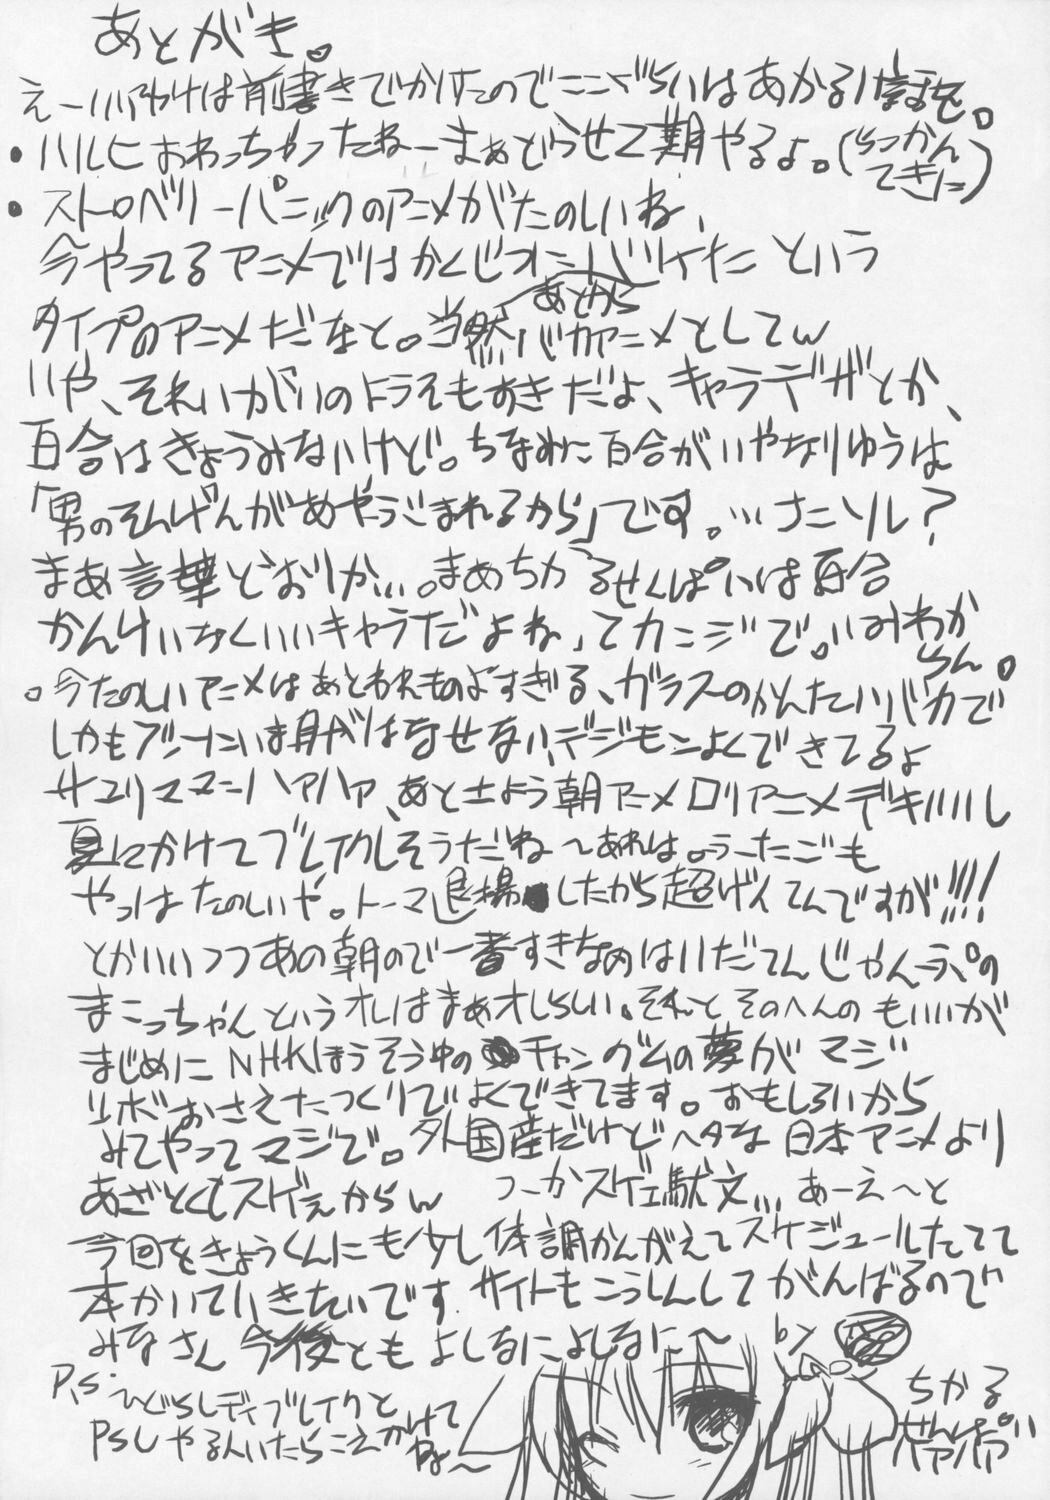 あとがき。
えーいいわけは前書きでかけたのでここぐらいはあかるい話を。
・ハルヒおわっちゃったねーまぁどうせ2期やるよ。(らっかんてきに)
・ストロベリーパニックのアニメがたのしいね、
今やってるアニメではかくじつにバケたという
タイプのアニメだなと。当然バカアニメとしてw
あとから
いや、それいがいのトコうもすきだよ、キャラデザとか、
百合はきょうみないけど。ちなみに百合がいやなりゆうは
「男のそんげんがあやうごまれるから」です。…ナニソレ?
まあ言葉どおりか…。まあちかるせんぱいは百合
かんけいなくいいキャラだよね、てカンジで。いみわからん。
。今たのしいアニメはあとわれものよすぎる、ガラスのかんたいバカで
しかもブソーにいま目がはなせない、デジモンよくできてるよ
サユリママンハァハァ、あと土よう朝アニメロリアニメデキいいし
夏にかけてブレイクしそうだね〜あれは。うーたごも
やっぱたのしいや。トーマ退場したから超げんてんですが!!!!
とかいいつつあの朝ので一番すきなのはいだてんじゃんぷの
まこっちゃんというオレはまぁオレらしい。それとそのへんのもいいが
まじめにNHKほうそう中のチャングムの夢がマジ
ツボおさえたつくりでよくできてます。おもしろいから
みてやってマジで。外国産だけどヘタな日本アニメより
あざとくもスゲぇからw つーかスゲェ駄文… あーえ〜と
今回をきょうくんにも少し体調かんがえてスケジュールたてて
本かいていきたいです。サイトもこうしんしてがんばるので
みなさん今後ともよしなによしなに〜 by
P.S. ひぐらしデイブレイクと
PSUやる人いたらこえかけて
ね〜
ちかる
せんぱい
ハァハァ